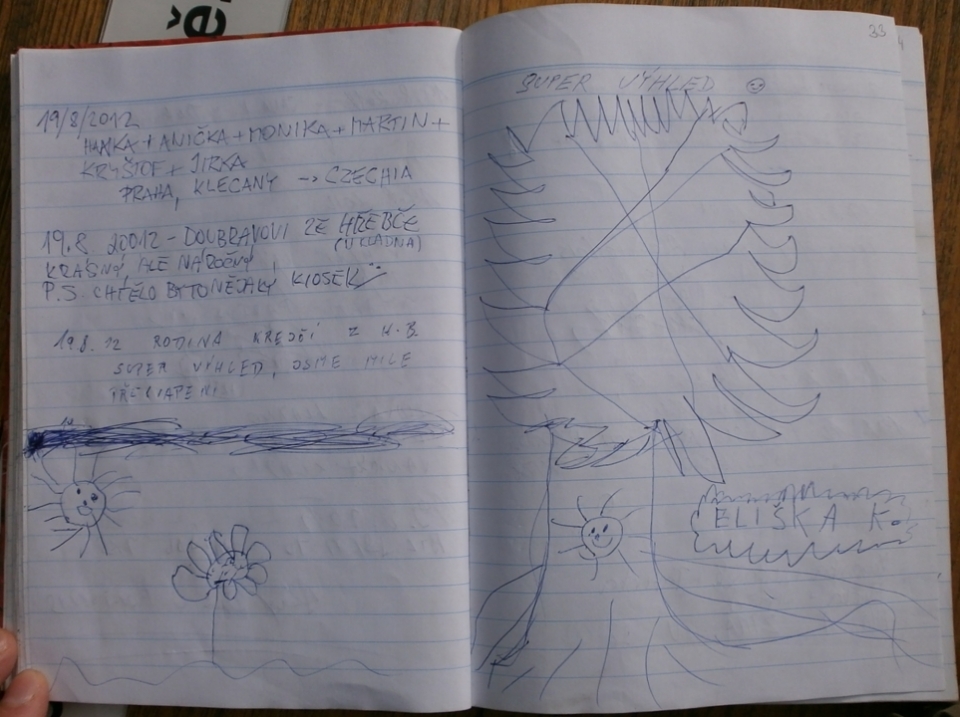 19/8/2012
HANKA + ANIČKA + MONIKA + MARTIN +
KRYŠTOF + JIRKA
PRAHA, KLECANY -> CZECHIA
19.8. 20012 - DOUBRAVOVI ZE HŘEBČE
(U KLADNA)
KRÁSNÝ, ALE NÁROČNÝ
P.S. CHTĚLO BY TO NĚJAKÝ KIOSEK
19.8.12 RODINA Z H.B.
SUPER VÝHLED, JSME MILE
PŘEKVAPENI
33
SUPER VÝHLED ☺
ELIŠKA K.
ě